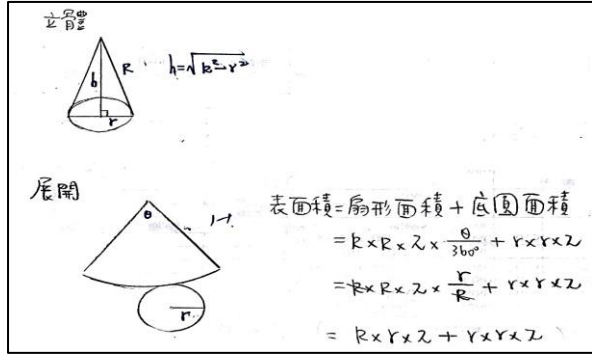 立體
h R h=√R²-r²
r
展開
θ
r
表面積=扇形面積+底圓面積
=R×R×π×θ/360°+r×r×π
=R×R×π×r/R+r×r×π
=R×r×π+r×r×π